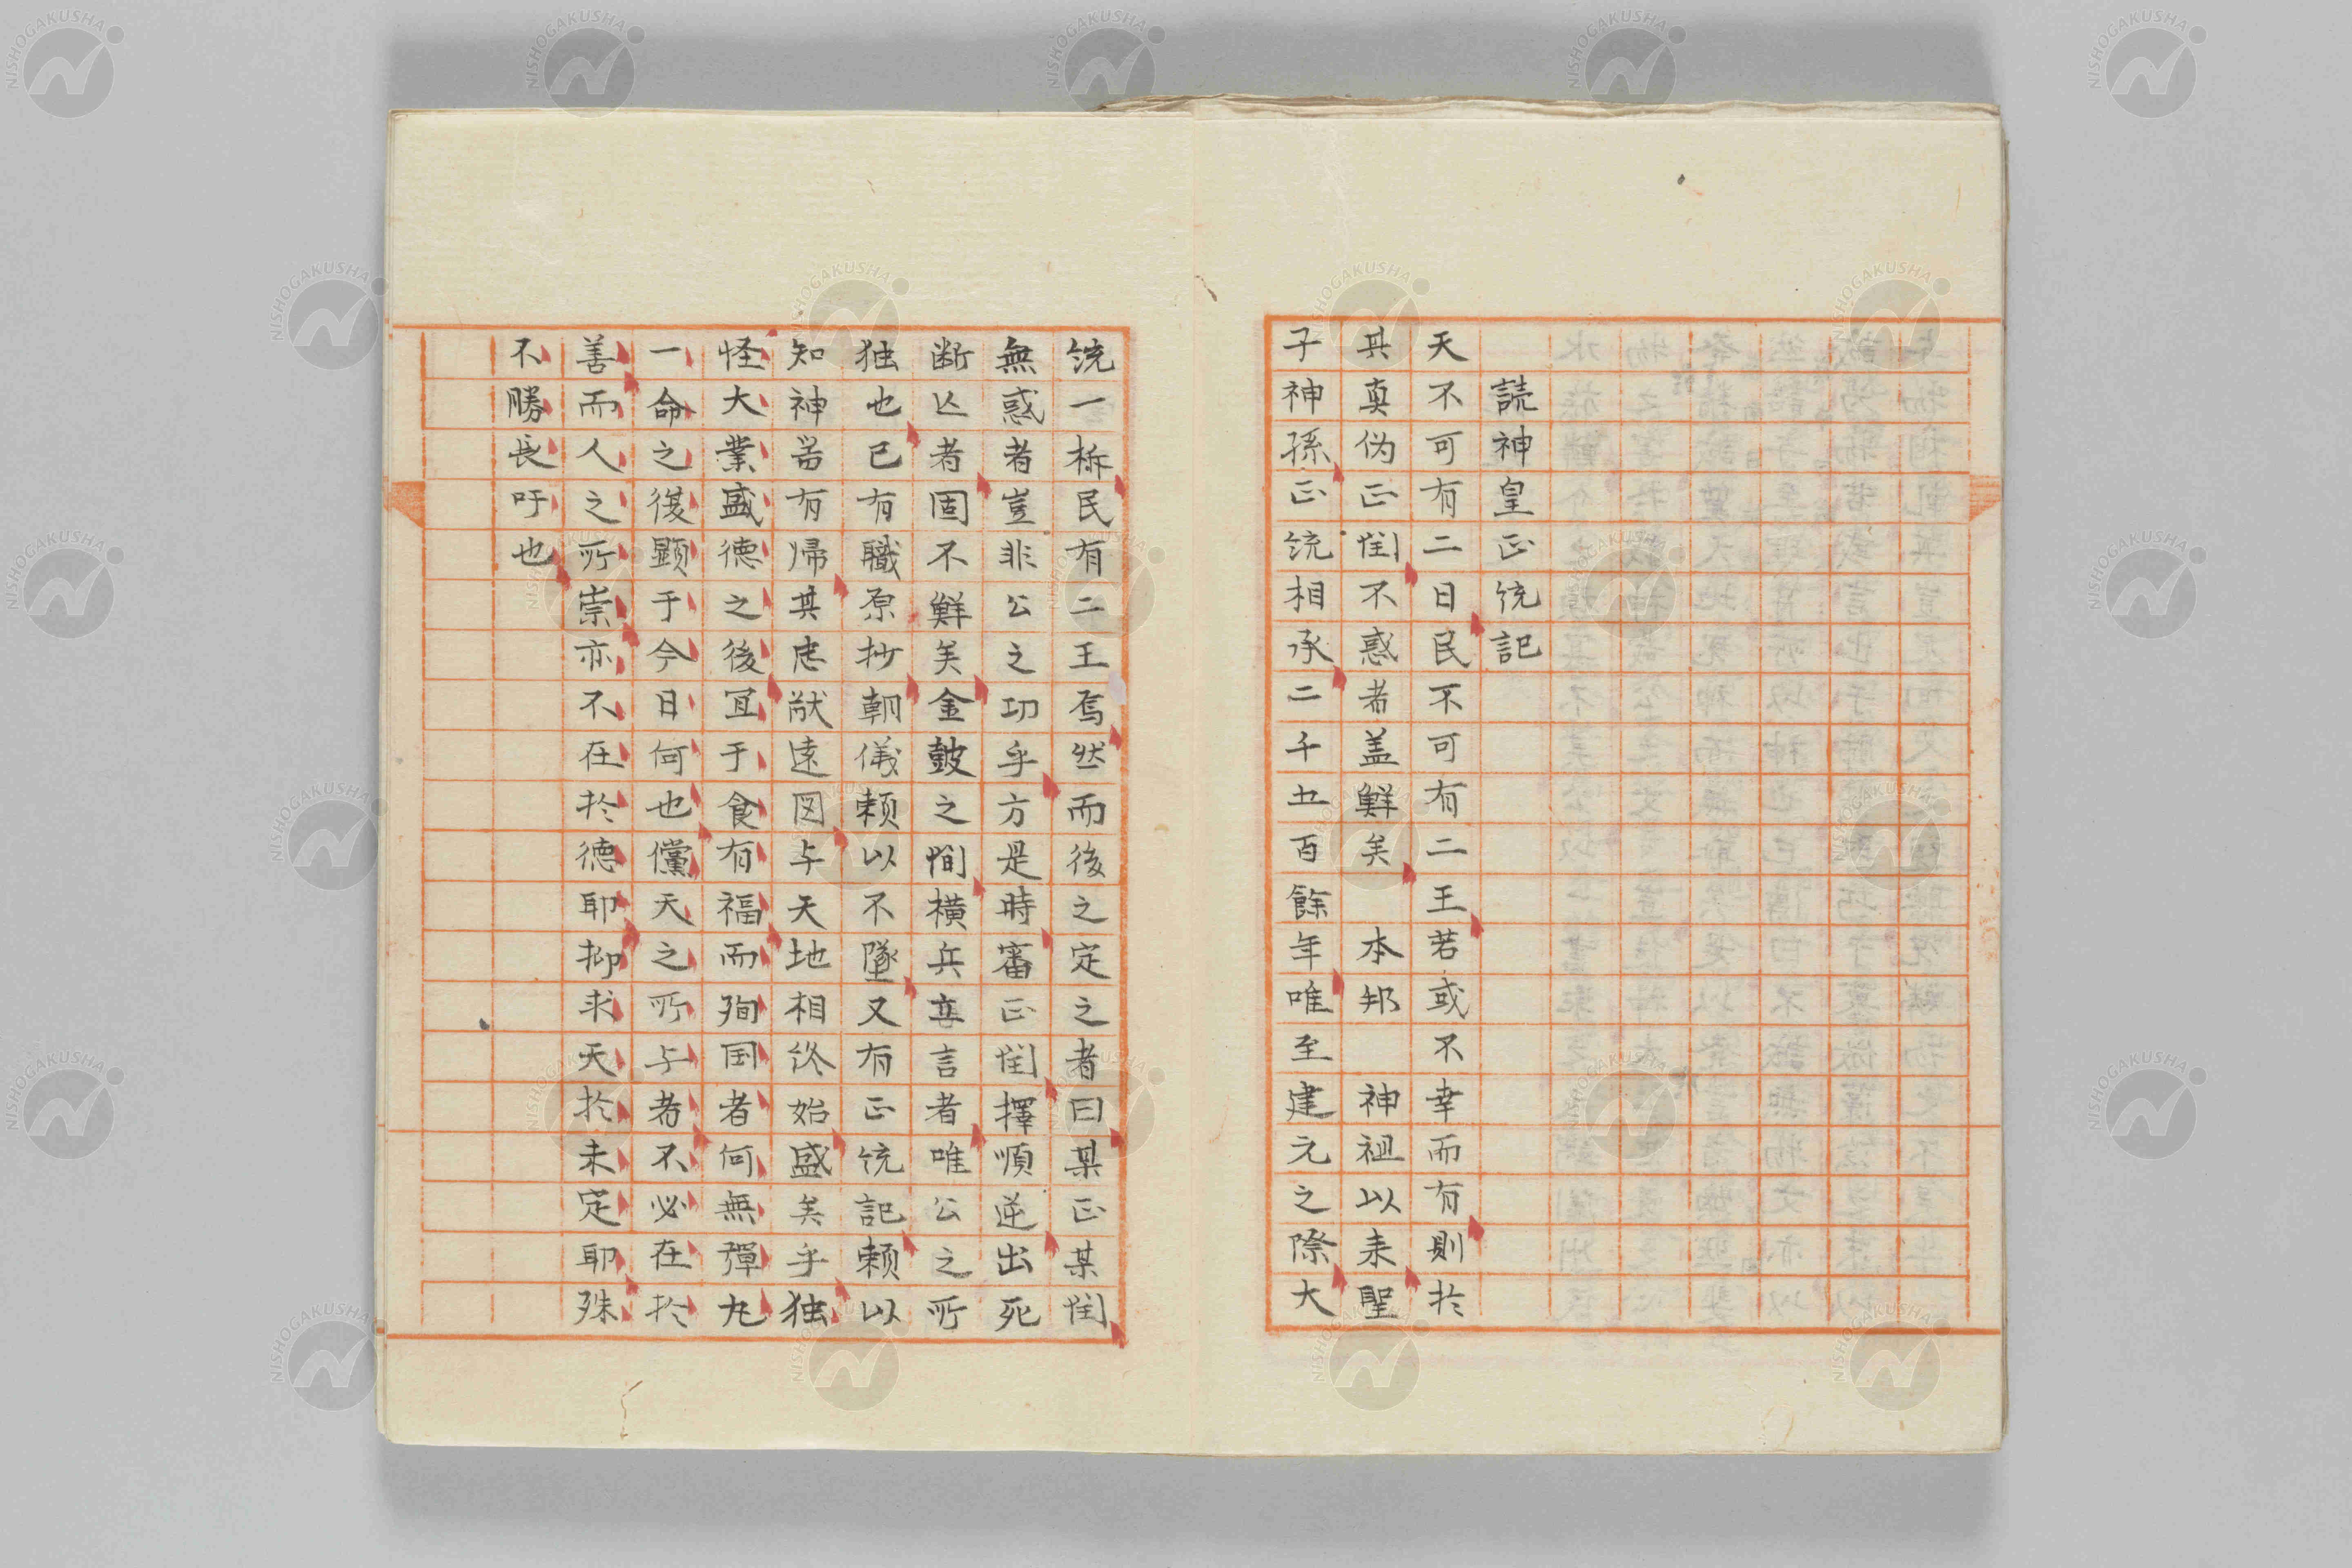 読神皇正統記
天不可有二日民不可有二王若或不幸而有則於
其真偽正閏不惑者盖鮮矣 本邦 神祖以来聖
子神孫正統相承二千五百餘年唯至建元之際大
統一柝民有二王焉然而後之定之者曰某正某閏
無惑者豈非公之功乎方是時審正閏擇順逆出死
断亡者固不鮮矣金鼓之間横兵立言者唯公之所
独也已有職原抄朝儀頼以不墜又有正統記頼以
知神器有帰其忠猷遠図与天地相終始盛矣乎独
怪大業盛徳之後宜于食有福而殉国者何無弾丸
一命之後顕于今日何也儻天之所与者不必在於
善而人之所崇亦不在於徳耶抑求天於未定耶殊
不勝長吁也
NISHOGAKUSHA